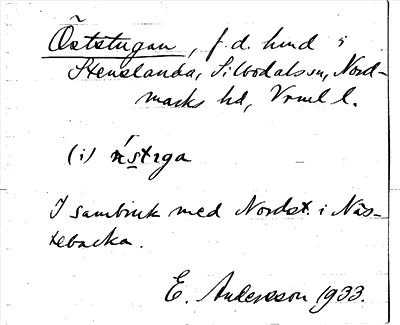 Öststugan, f.d. hmd i
Stenslanda, Silbodalssn, Nord-
marks hd, Vrml l.
(i)
I sambruk med Nordst. i Näs-
tebacka.
E. Andersson 1933.